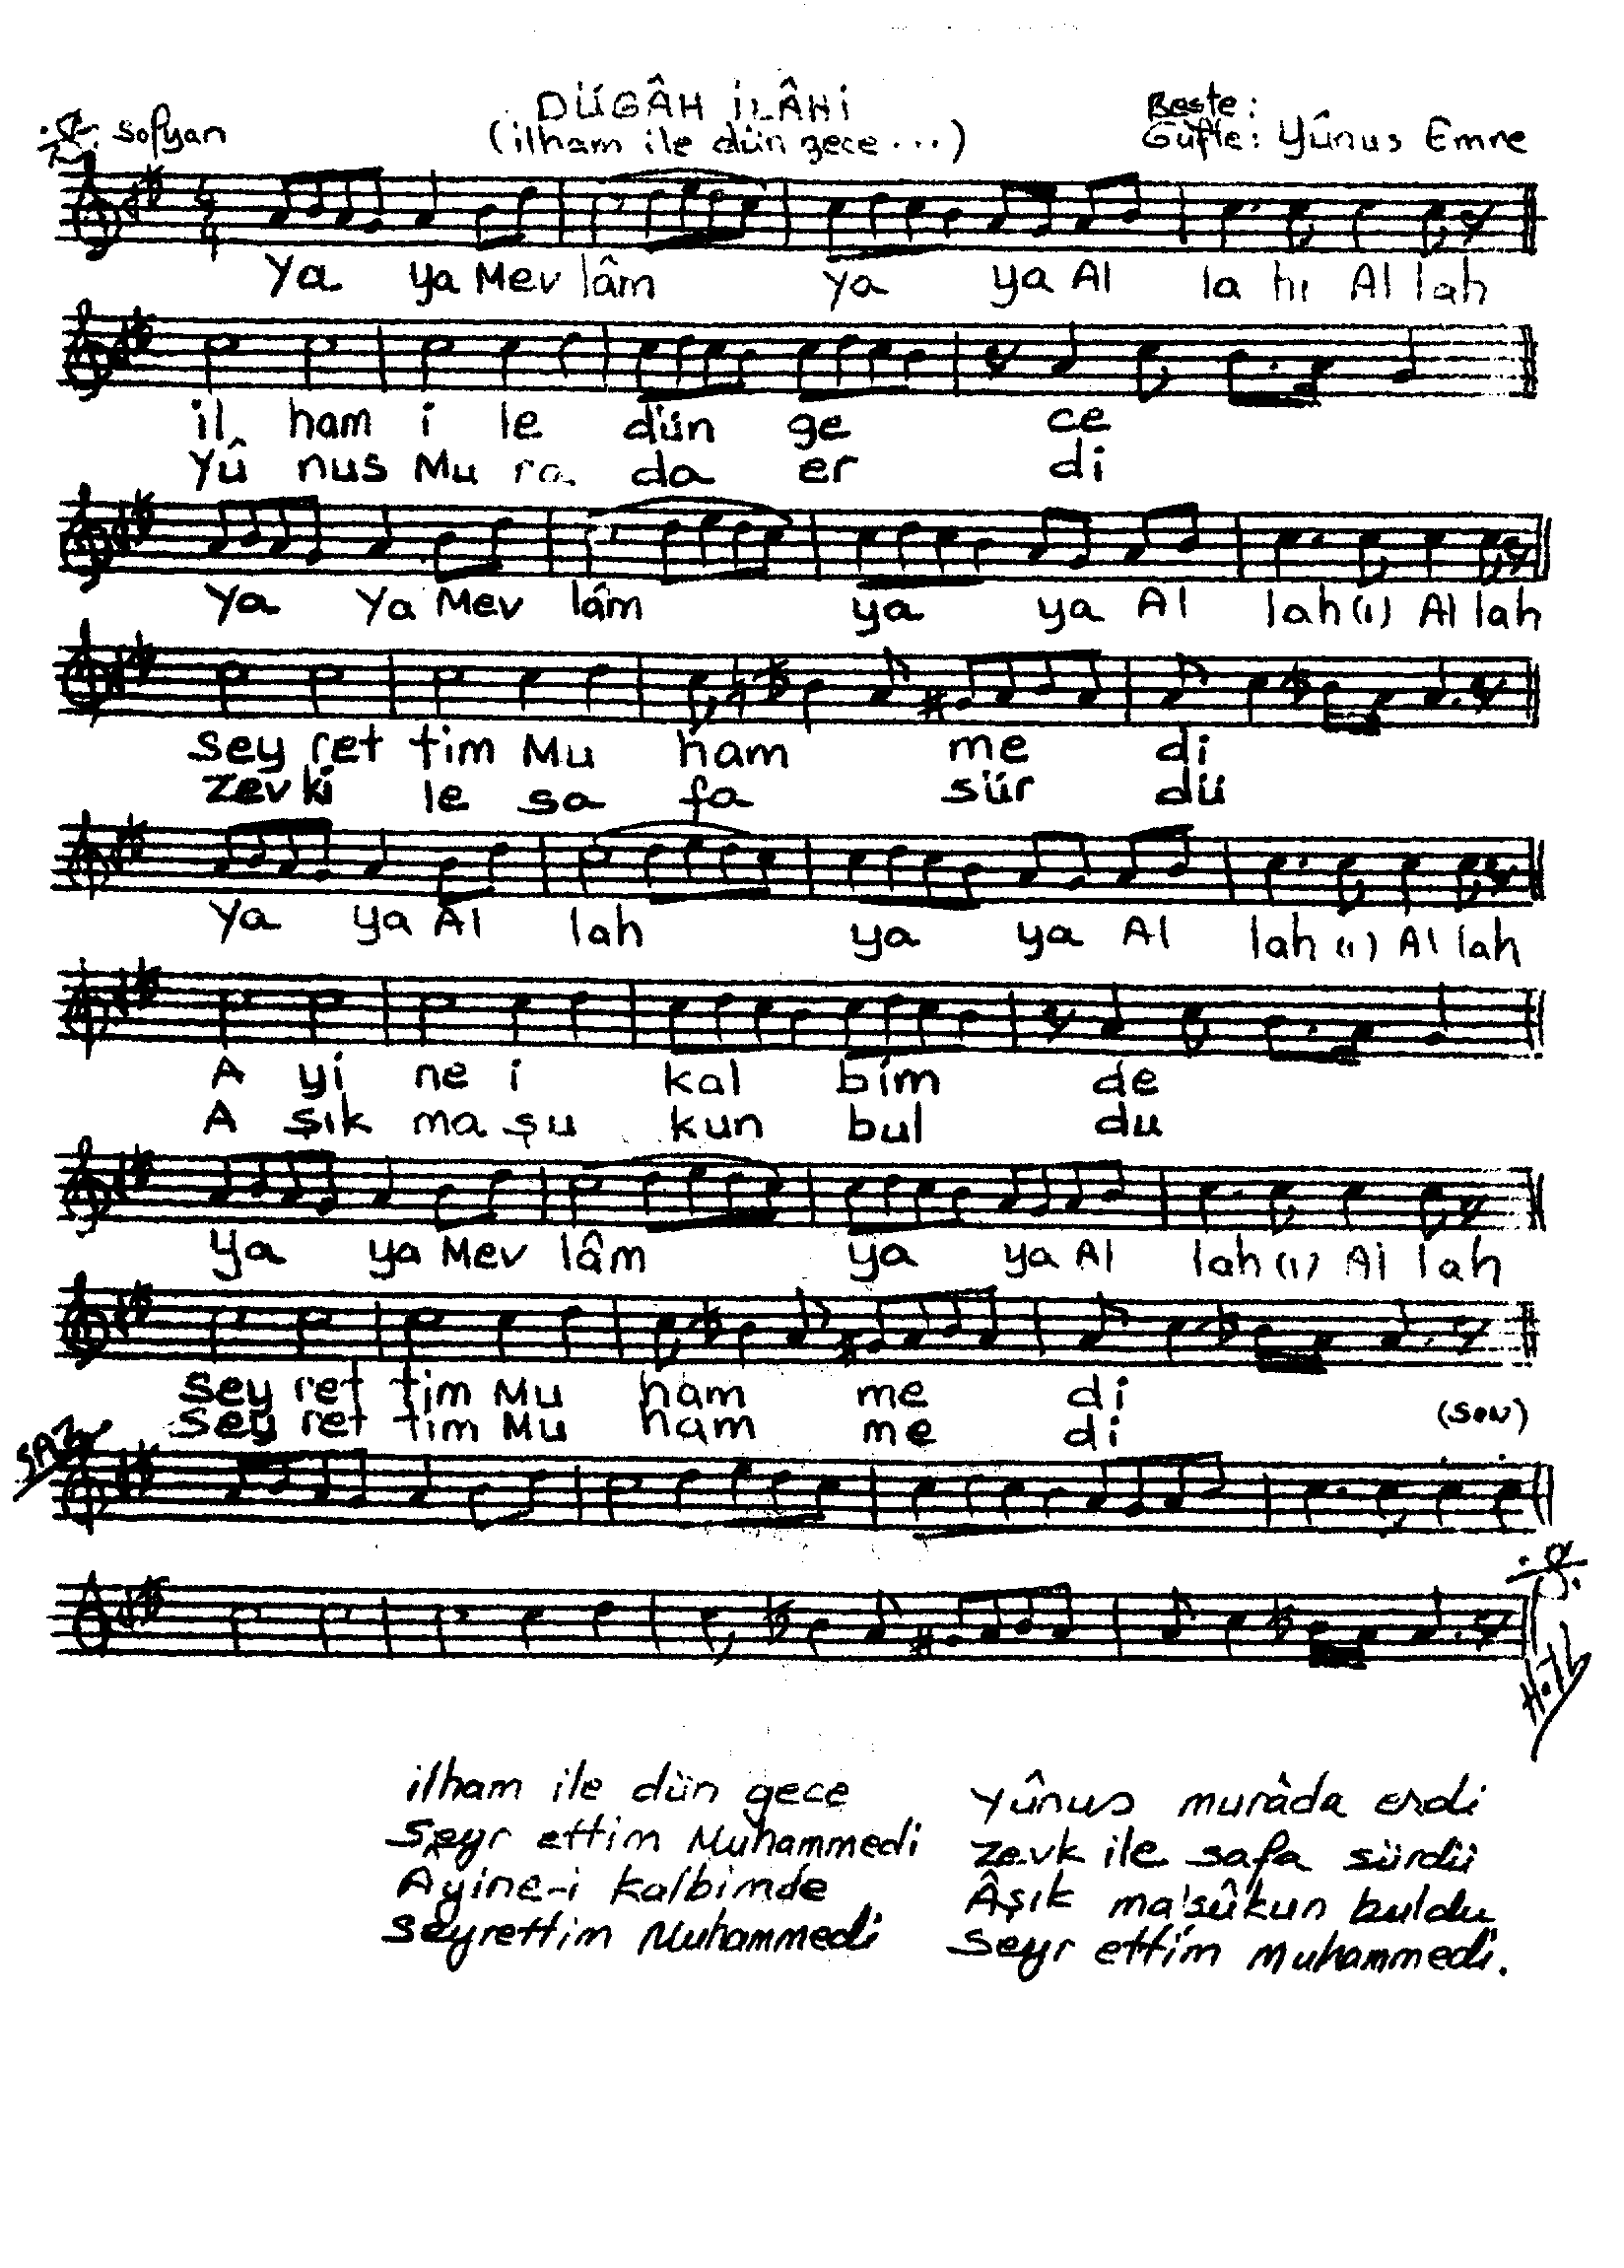 DÜGÂH İLÂHİ
Sofyan
(ilham ile dün gece...)
Beste:
Güfte: Yûnus Emre
4/4
Ya ya Mev lâm ya ya Al la hı Al lah
il ham i le dün ge ce
Yû nus Mu ra da er di
Ya Ya Mev lâm ya ya Al lah(ı) Al lah
Sey ret tim Mu ham me di
zev ki le sa fa sür dü
Ya ya Al lah ya ya Al lah(ı) Al lah
A yi ne i kal bim de
A şık ma şu kun bul du
Ya ya Mev lâm ya ya Al lah(ı) Al lah
Sey ret tim Mu ham me di
Sey ret tim Mu ham me di (SON)
SAZ
ilham ile dün gece
Seyr ettim Muhammedi
Ayine-i kalbimde
Seyrettim Muhammedi
Yûnus murâda erdi
Zevk ile safa sürdü
Âşık ma'şûkun buldu
Seyr ettim Muhammedi.